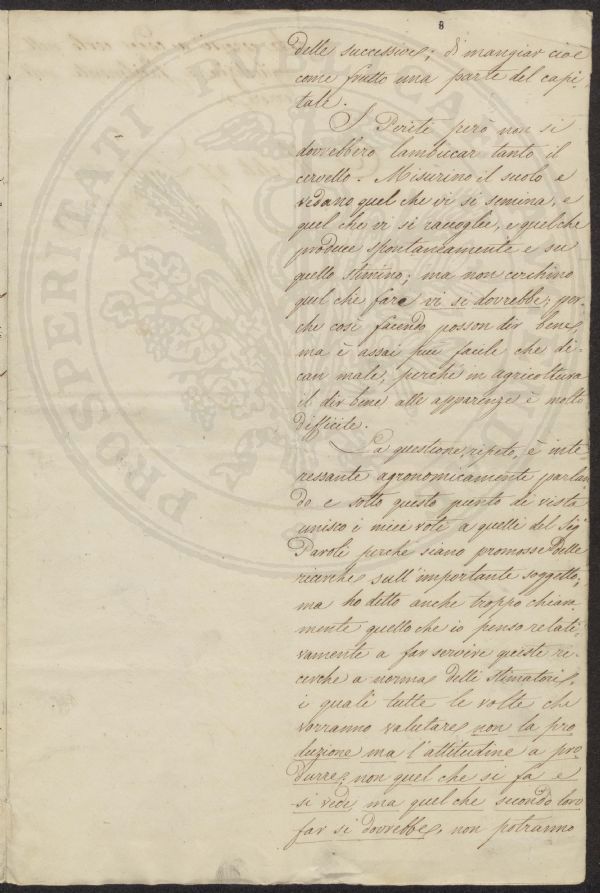 8
delle successioni; di mangiar cioè
come frutto una parte del capi-
tale.
I Periti però non si
dovrebbero lambiccar tanto il
cervello. Misurino il suolo e
vedano quel che vi si semina, e
quel che vi si raccoglie, e quel che
produce spontaneamente e su
quello stimino; ma non cerchino
quel che fare vi si dovrebbe; per-
che così facendo posson dir bene,
ma è assai più facile che di-
can male, perchè in agricoltura
il dir bene alle apparenze è molto
difficile.
La questione, ripeto, è inte
ressante agronomicamente parlan
do e sotto questo punto di vista
unisco i miei voti a quelli del Sigr
Paroli perchè siano promosse delle
ricerche sull'importante soggetto;
ma ho detto anche troppo chiara-
mente quello che io penso relati-
vamente a far servire queste ri-
cerche a norma delli stimatori,
i quali tutte le volte che
vorranno valutare non la pro
duzione ma l'attitudine a pro-
durre; non quel che si fa e
si vede, ma quel che secondo loro
far si dovrebbe, non potranno
PROSPERITATI PUBLICAE